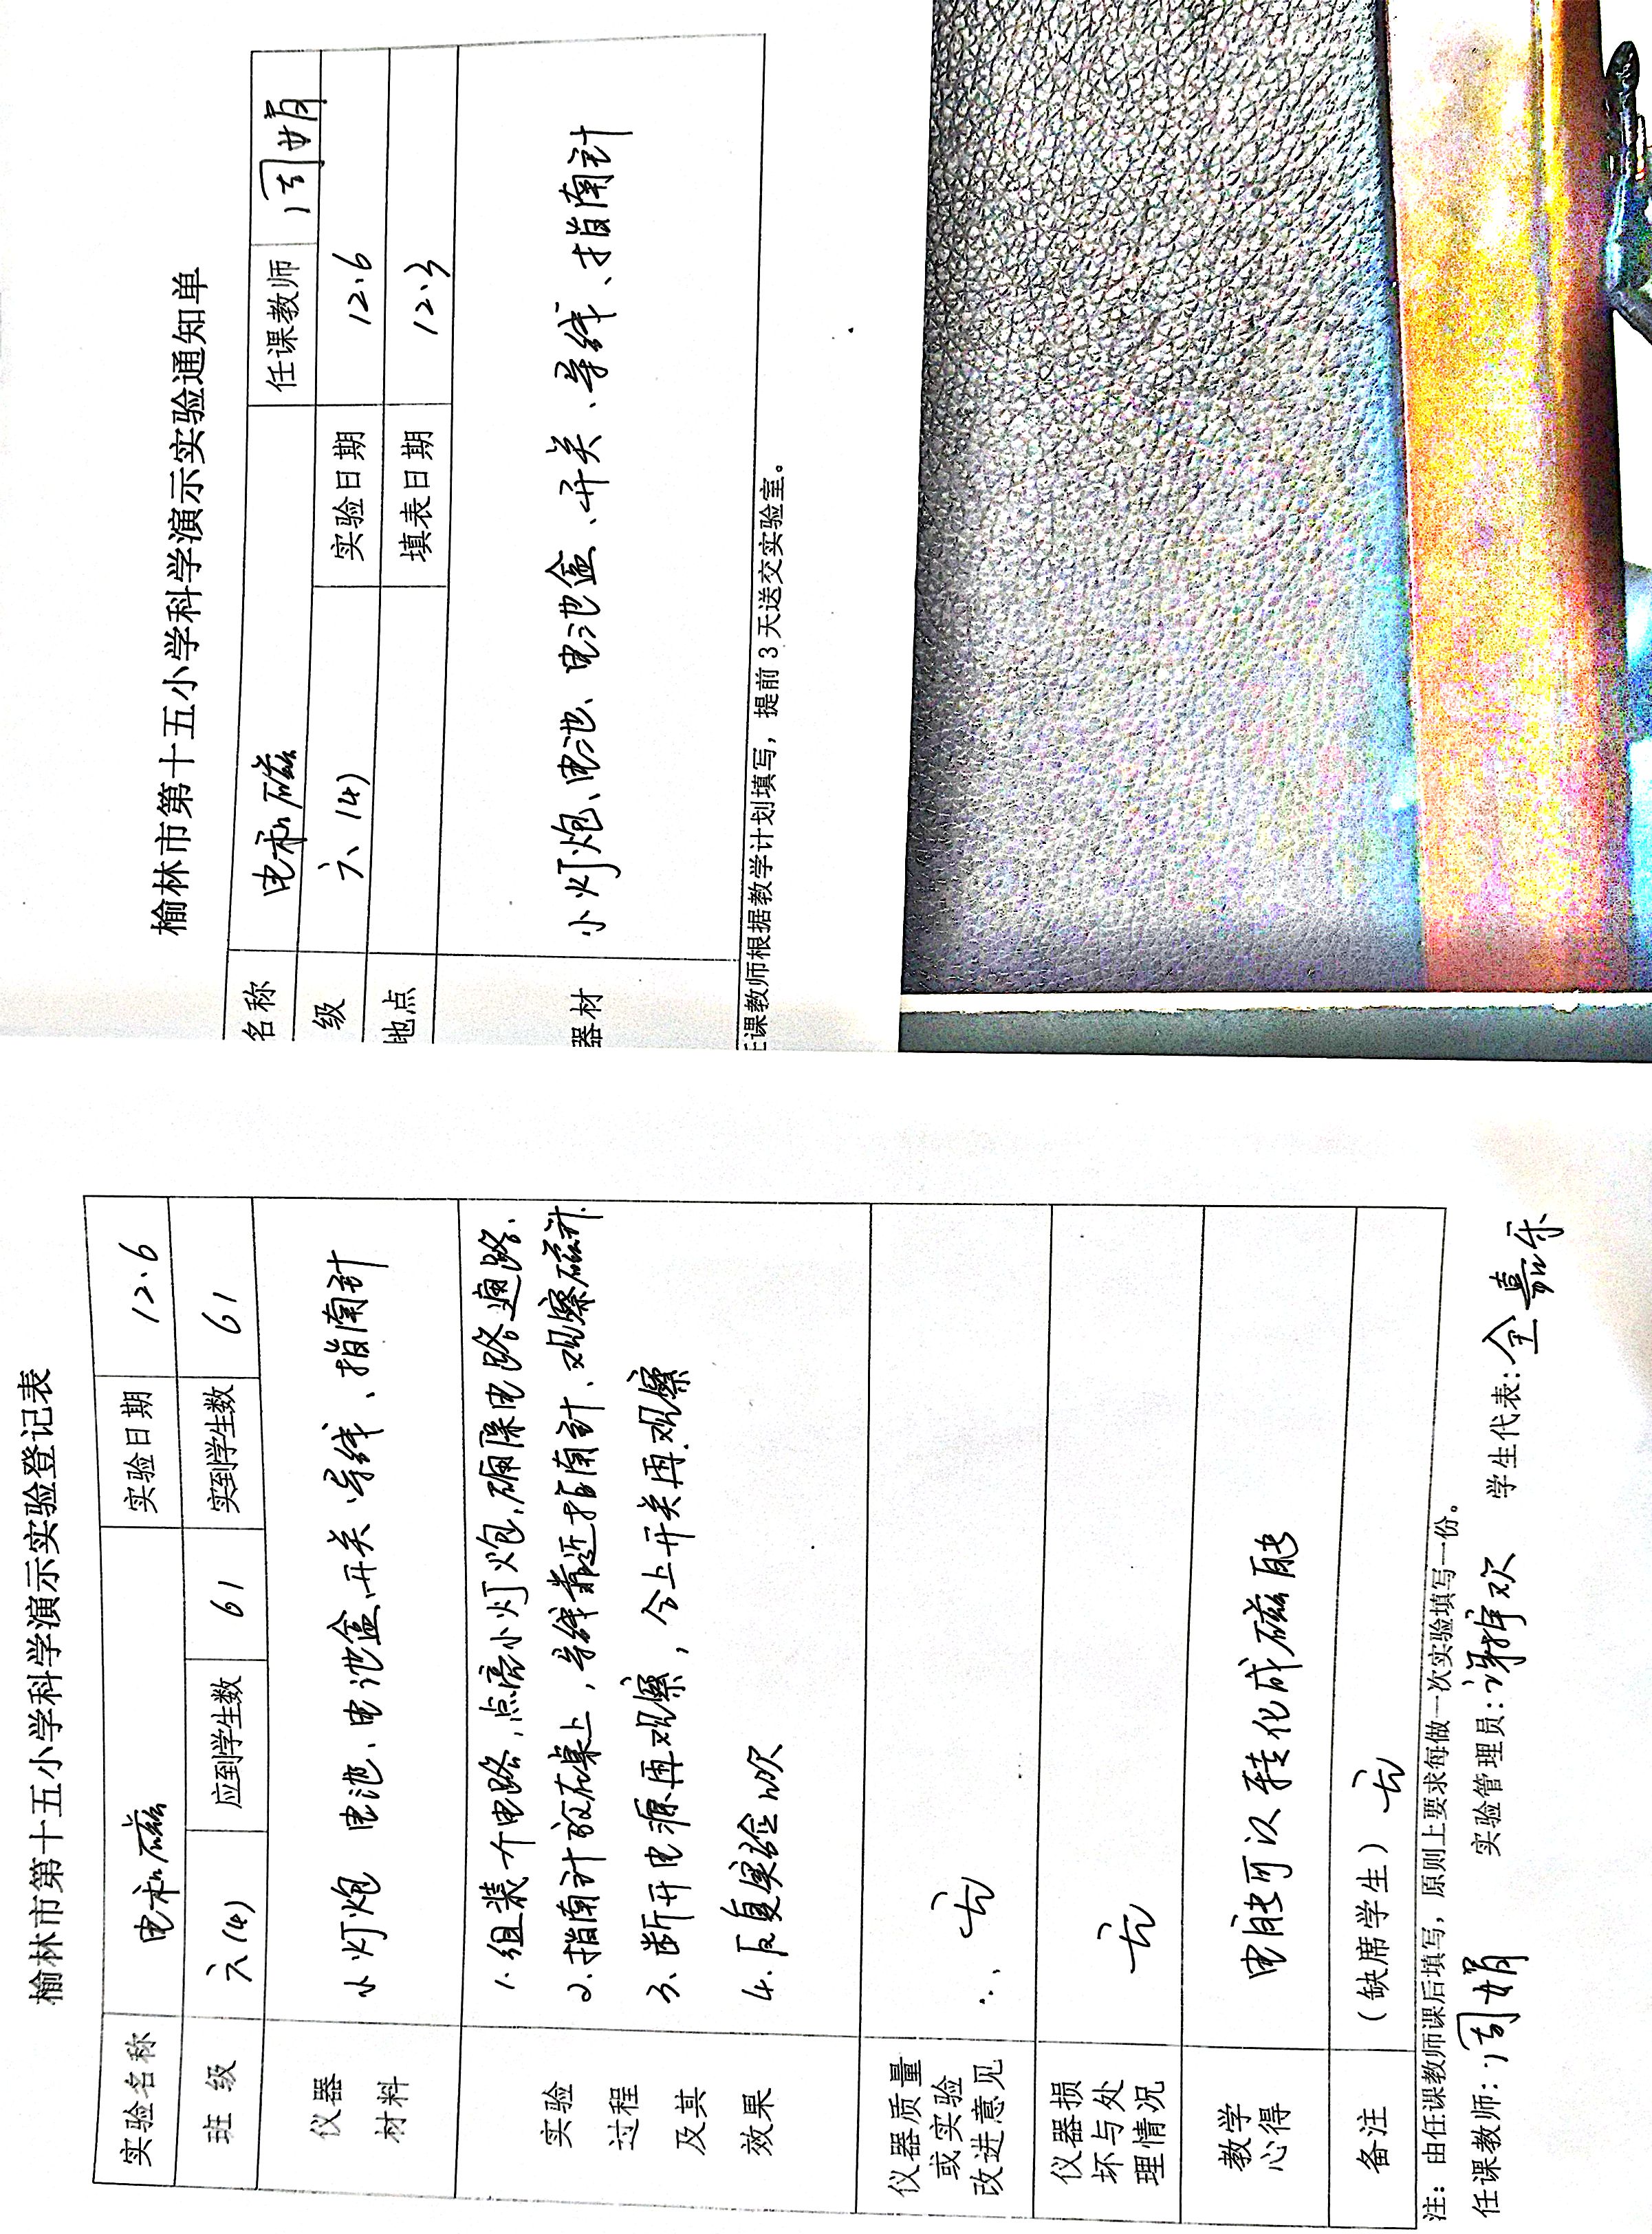 榆林市第十五小学科学演示实验通知单
名称 电和磁 任课教师 周娟
级 六(4) 实验日期 12.6
地点 填表日期 12.3
器材 小灯炮、电池、电池盒、开关、导线、指南针
任课教师根据教学计划填写，提前3天送交实验室。
榆林市第十五小学科学演示实验登记表
实验名称 电和磁 实验日期 12.6
班 级 六(4) 应到学生数 61 实到学生数 61
仪器
材料
小灯炮 电池、电池盒、开关、导线、指南针
实验
过程
及其
效果
1.组装个电路,点亮小灯炮,确保电路通路.
2.指南针放在桌上,导线靠近指南针、观察磁针.
3、断开电源再观察,合上开关再观察
4.反复实验以次
仪器质量
或实验
改进意见
无
仪器损
坏与处
理情况
无
教学
心得
电能可以转化成磁能
备注 (缺席学生) 无
注: 由任课教师课后填写，原则上要求每做一次实验填写一份。
任课教师: 周娟 实验管理员: 欢 学生代表: 全嘉乐